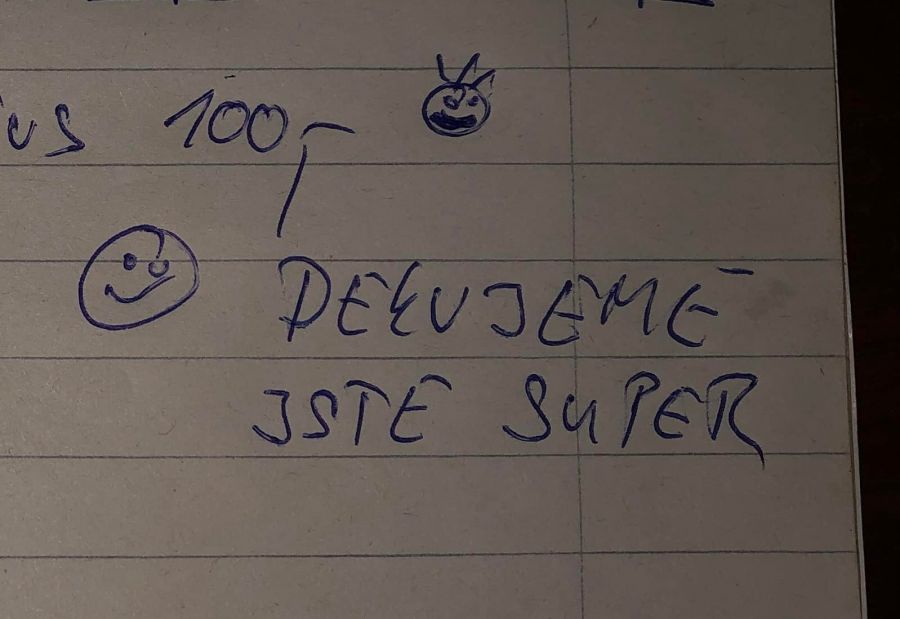 us 100,-
DEKUJEME
JSTE SUPER